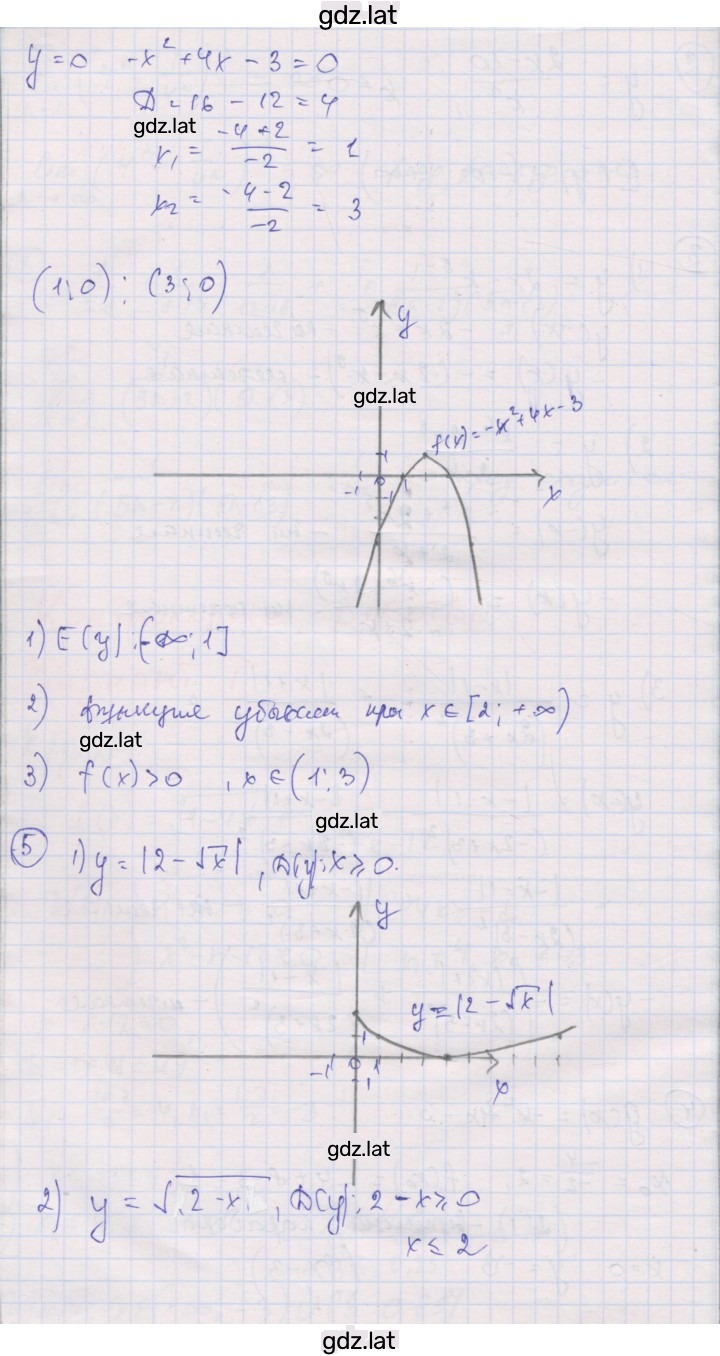 gdz.lat
y=0 -x²+4x-3=0
D=16-12=4
gdz.lat
x₁= (-4+2)/(-2) = 1
x₂= (-4-2)/(-2) = 3
(1;0); (3;0)
y
gdz.lat
f(x)=-x²+4x-3
1
-1 0 1 x
-1
1) E(y):(-∞;1]
2) функция убывает при x∈[2;+∞)
gdz.lat
3) f(x)>0, x∈(1;3)
gdz.lat
5 1) y=|2-√x|, D(y): x≥0.
y
y=|2-√x|
1
-1 0 1 x
1
gdz.lat
2) y=√(2-x), D(y): 2-x≥0
x≤2
gdz.lat